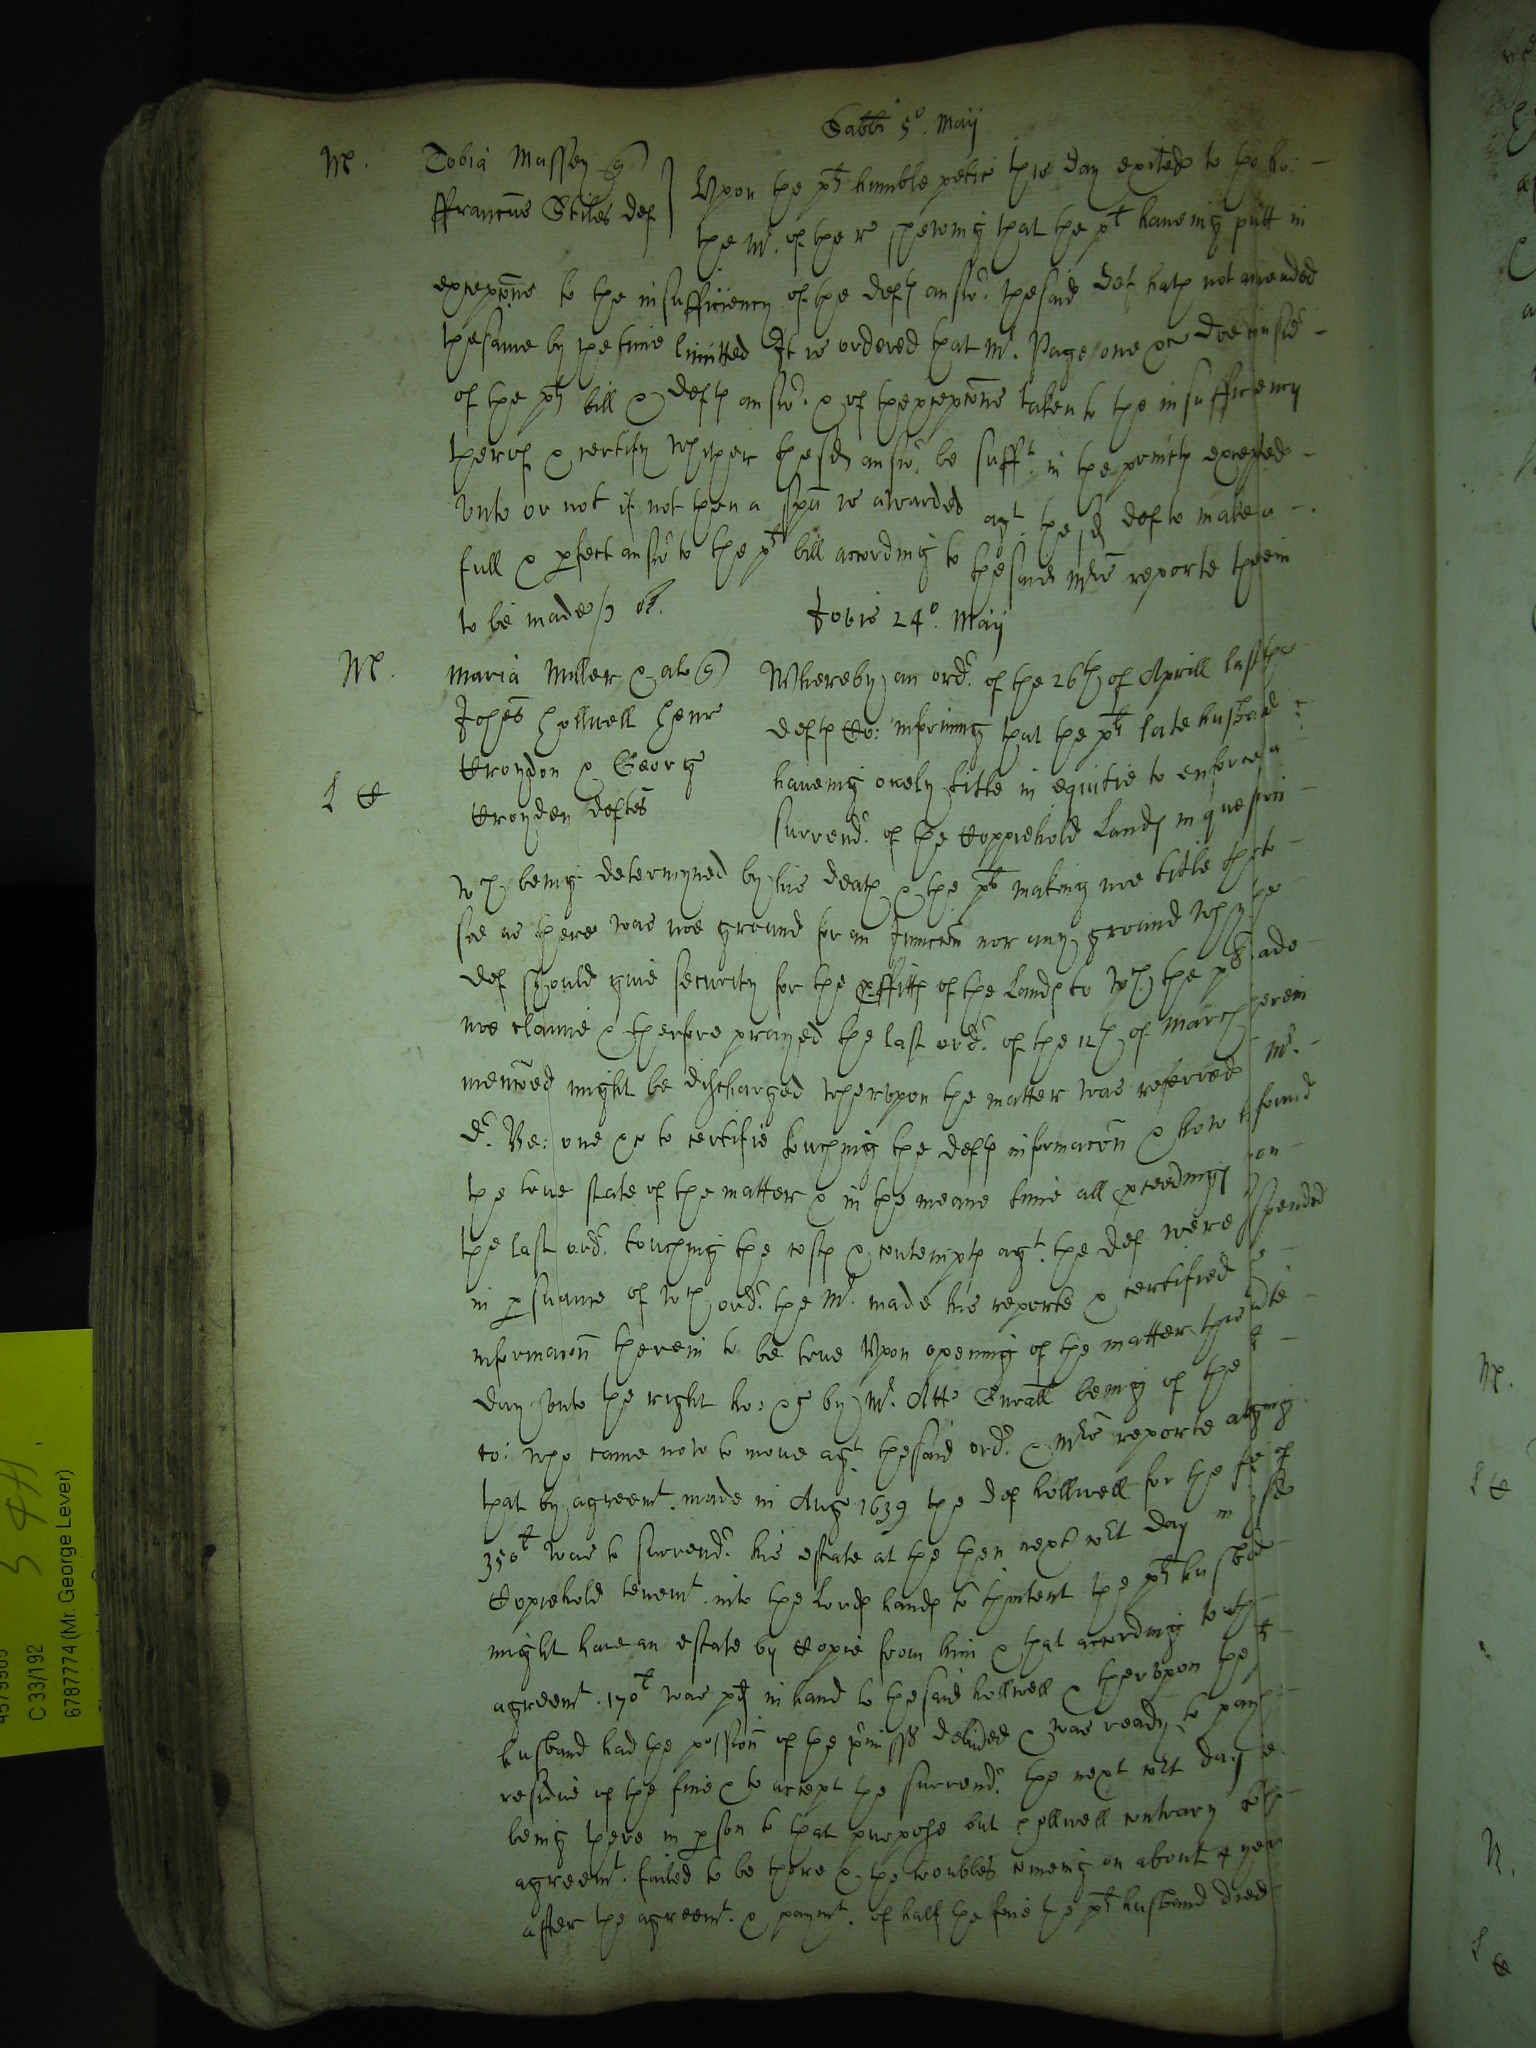 Sabbti 5o. Maij
M.
Tobia Massey q
ffrancus Stiles def
Upon the plts humble petic this day exited to the ho:
the Mr. of the r shewing that the plt haveing putt in
excepcons to the insufficiency of the defts answr. the said def hath not amended
the same by the time limitted It is ordered that Mr. Page one &c doe consid
of the plts bill & defts answr. & of thexcepcons taken to the insufficiency
therof & certify whither the sd answr. be sufft. in the points excepted
unto or not if not then a spa is awarded agt. the sd def to make a
full & pfect answr to the plts bill according to the said Mrs reporte therin
to be made
Jovis 24o. Maij
M.
L
Maria Miller & al q
Johes Hollwell Henr
Croydon & Georg
Croyden deftes
Whereby an ordr. of the 26th of Aprill last the
defts Co: informing that the plts late husband
haveing onely title in equitie to enforce a
surrendr. of the Coppiehold Lands in question
wch being determyned by his death & the plt making noe title therto
soe as there was noe ground for an Injuncon nor any ground why the
def should give security for the pffitts of the Lands to wch the plts
noe claime & therfore prayed the last ordr. of the 12th of March therein
menconed might be discharged wherupon the matter was referred Mr.
one &c to certifie touching the defts informacon & how found
the true state of the matter & in the meane time all pceedings on
the last ordr. touching the costs & contempts agt. the def were suspended
in psuance of wch ordr. the Mr. made his reporte & certified
informacon therein to be true Upon opening of the matter this
day unto the right ho: &c by Mr. Att Gnrall being of the
Co: who came now to move agt the said ordr. & Mrs reporte
that by agreemt. made in Aug 1639 the def hollwell for the fine of
350l was to surrendr. his estate at the then next Crt day in
Copiehold tenemt. into the Lords hands to thintent the plts husband
might have an estate by Copie from him & that according to the
agreemt. 170l was pd in hand to the said hollwell & therupon the
husband had the possion of the pmisss delived & was ready to pay
residue of the fine & to accept the surrendr. the next Crt day
being there in pson to that purpose but Hollwell contrary to the
agreemt. failed to be there & the troubles comeing on about 4 yer
after the agreemt. & paymt. of half the fine the plts husband died
C 33/192
6787774 (Mr. George Lever)